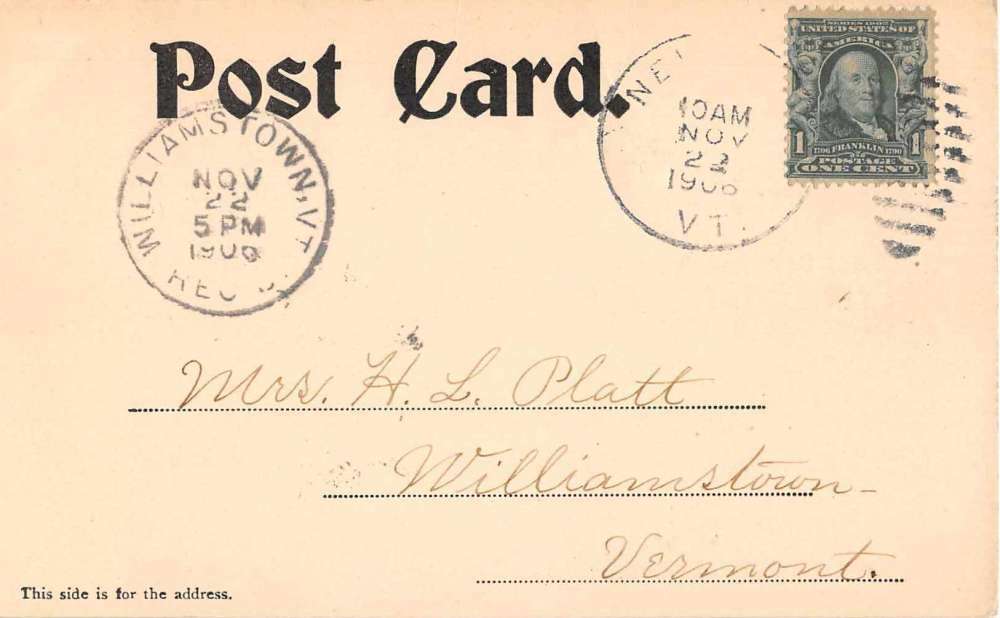 Post Card.
WILLIAMSTOWN, VT.
NOV
22
5 PM
1906
REC'D.
10 AM
NOV
22
1906
VT.
SERIES 1902
UNITED STATES OF
AMERICA
1 1
1706 FRANKLIN 1790
POSTAGE
ONE CENT
Mrs. H. L. Platt
Williamstown-
Vermont.
This side is for the address.